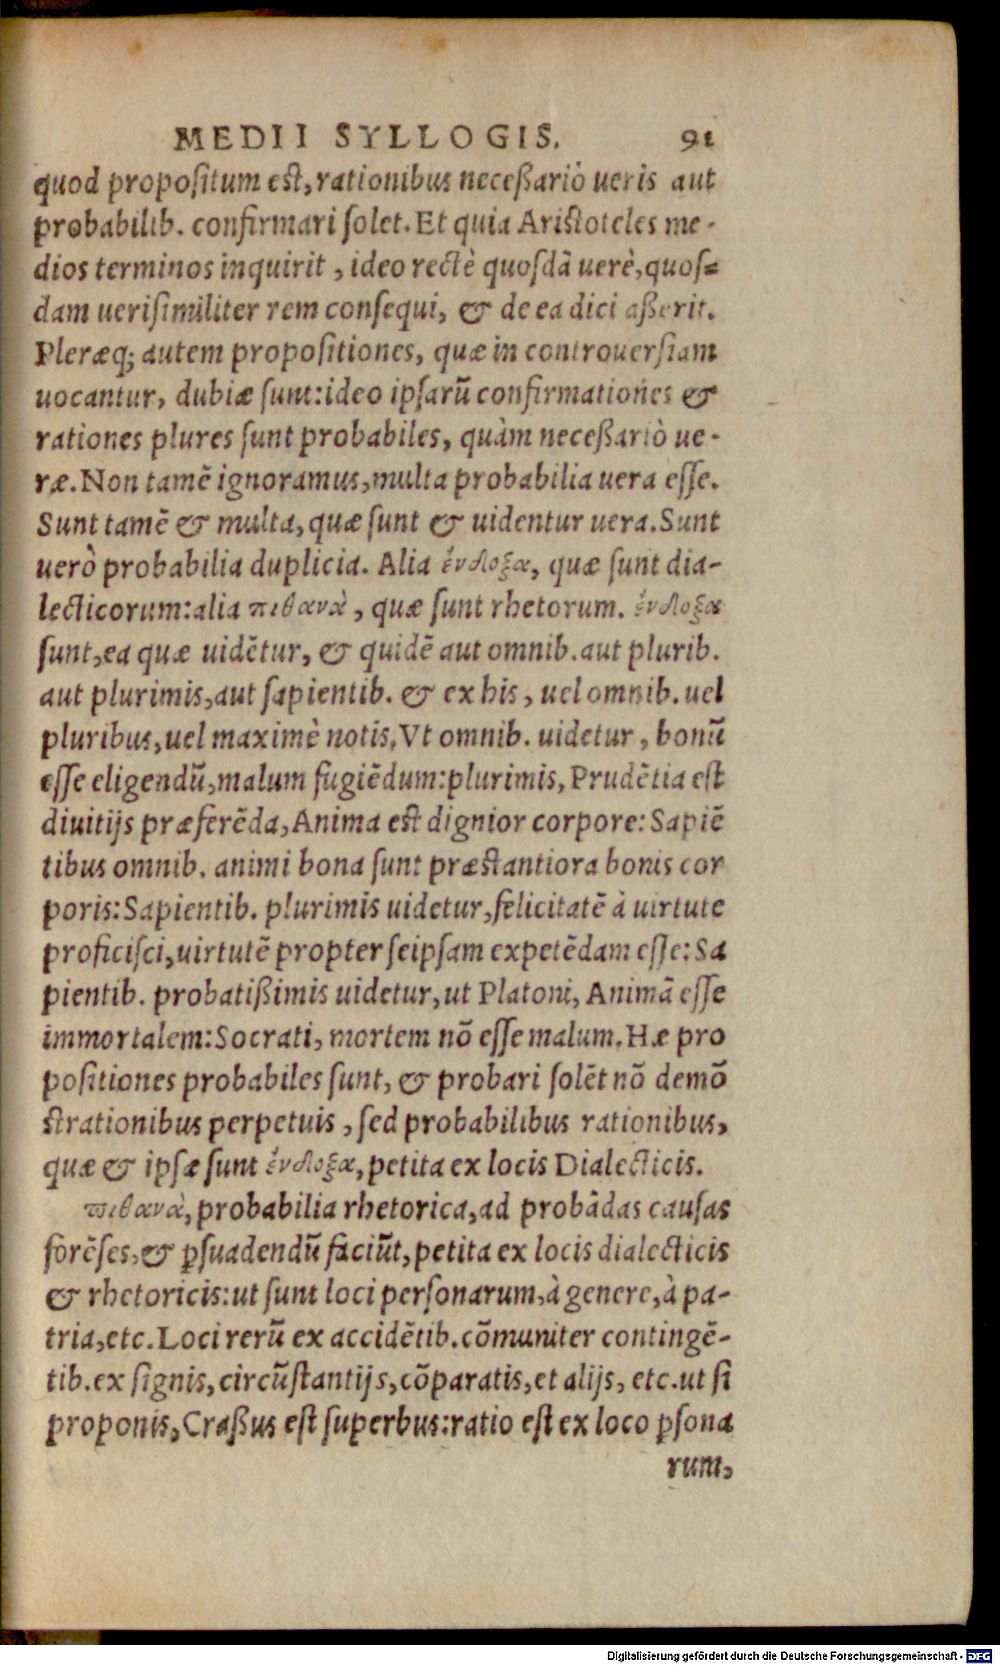 MEDII SYLLOGIS. 91
quod propositum est, rationibus neceßariò ueris aut
probabilib. confirmari solet. Et quia Aristoteles me-
dios terminos inquirit, ideo rectè quosdā uerè, quos-
dam uerisimiliter rem consequi, & de ea dici aßerit.
Pleræq; autem propositiones, quæ in controuersiam
uocantur, dubiæ sunt: ideo ipsarū confirmationes &
rationes plures sunt probabiles, quàm neceßariò ue-
ræ. Non tamē ignoramus, multa probabilia uera esse.
Sunt tamē & multa, quæ sunt & uidentur uera. Sunt
uerò probabilia duplicia. Alia ἔνδοξα, quæ sunt dia-
lecticorum: alia πιθανὰ, quæ sunt rhetorum. ἔνδοξα
sunt, ea quæ uidētur, & quidē aut omnib. aut plurib.
aut plurimis, aut sapientib. & ex his, uel omnib. uel
pluribus, uel maximè notis. Vt omnib. uidetur, bonū
esse eligendū, malum fugiēdum: plurimis, Prudētia est
diuitijs præferēda, Anima est dignior corpore: Sapiē
tibus omnib. animi bona sunt præstantiora bonis cor
poris: Sapientib. plurimis uidetur, felicitatē à uirtute
proficisci, uirtutē propter seipsam expetēdam esse: Sa
pientib. probatißimis uidetur, ut Platoni, Animā esse
immortalem: Socrati, mortem nō esse malum. Hæ pro
positiones probabiles sunt, & probari solēt nō demō
strationibus perpetuis, sed probabilibus rationibus,
quæ & ipsæ sunt ἔνδοξα, petita ex locis Dialecticis.
πιθανὰ, probabilia rhetorica, ad probādas causas
forēses, & ꝑsuadendū faciūt, petita ex locis dialecticis
& rhetoricis: ut sunt loci personarum, à genere, à pa-
tria, etc. Loci rerū ex accidētib. cōmuniter contingē-
tib. ex signis, circūstantijs, cōparatis, et alijs, etc. ut si
proponis, Craßus est superbus: ratio est ex loco ꝑsona
rum,
Digitalisierung gefördert durch die Deutsche Forschungsgemeinschaft - DFG